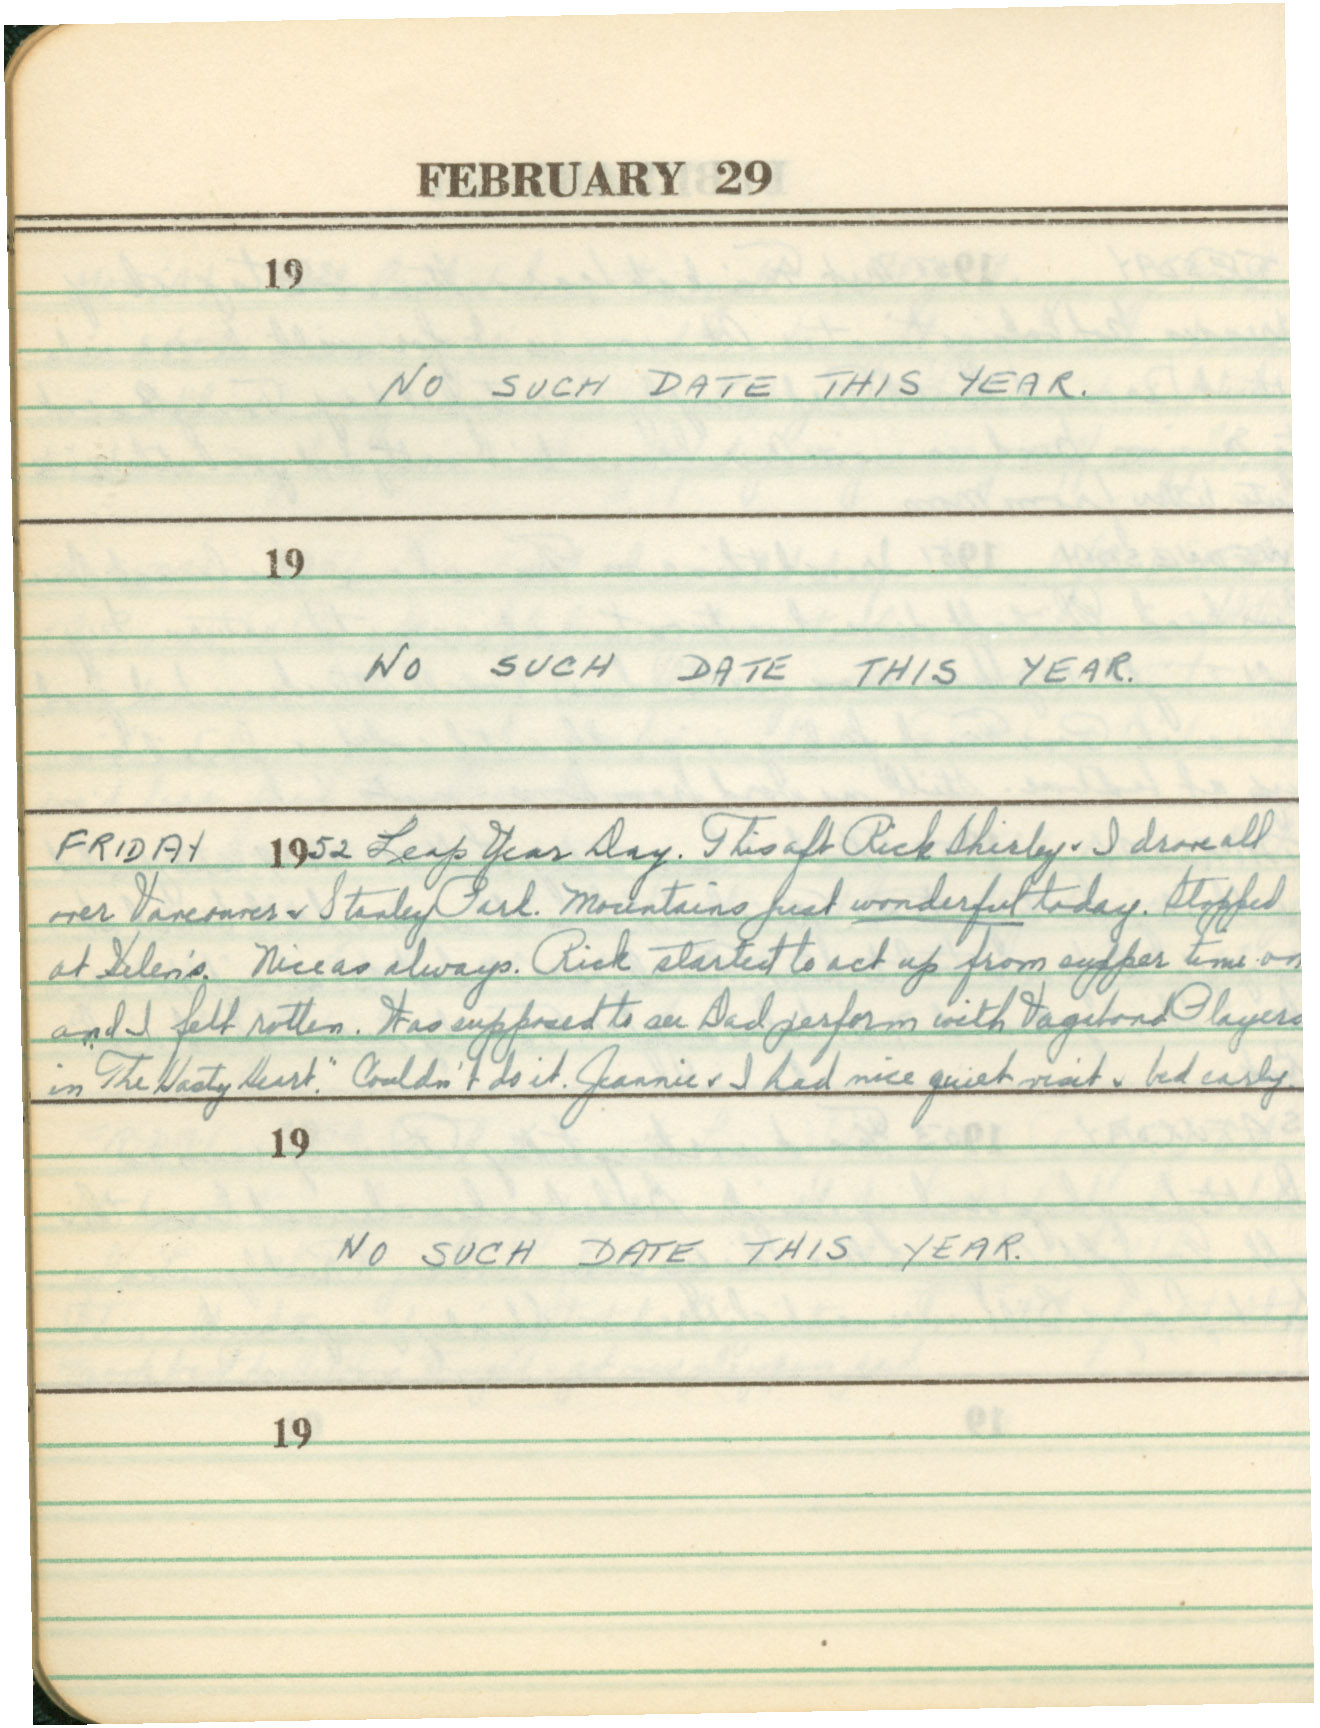 FEBRUARY 29
19
NO SUCH DATE THIS YEAR.
19
NO SUCH DATE THIS YEAR.
FRIDAY 1952 Leap Year Day. This aft Rick Shirley & I drove all
over Vancouver & Stanley Park. Mountains just wonderful today. Stopped
at Helen's. Nice as always. Rick started to act up from supper time on
and I felt rotten. Was supposed to see Dad perform with Vagabond Players
in "The Hasty Heart." Couldn't do it. Jeannie & I had nice quiet visit & bed early.
19
NO SUCH DATE THIS YEAR.
19